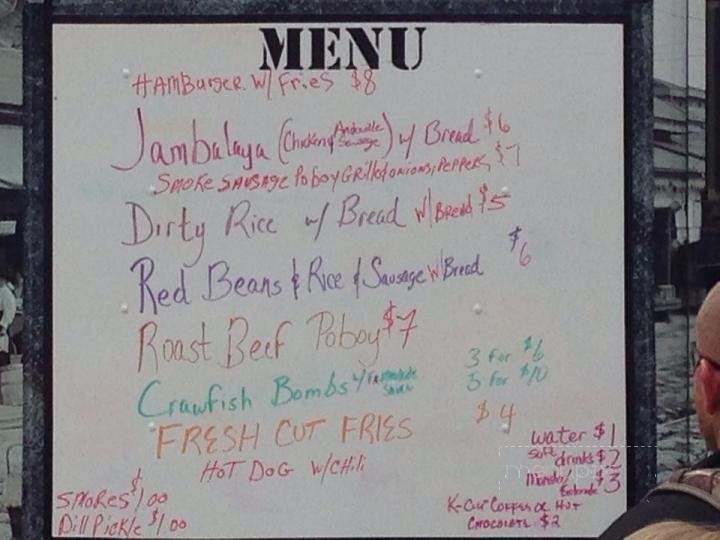 MENU
HAMBurger W/ Fries $8
Jambalaya (Chicken & Andouille Sausage) w/ Bread $6
Smoke Sausage Poboy Grilled onions, Peppers $7
Dirty Rice w/ Bread W/ Bread $5
Red Beans & Rice & Sausage w/ Bread $6
Roast Beef Poboy $7
Crawfish Bombs w/ Sauce 3 for $6
5 for $10
FRESH CUT FRIES $4
HOT DOG W/CHili
water $1
soft drinks $2
Monster/ $3
SMORES $1 00
Dill Pickle $1 00
K-Cup Coffee or Hot
Chocolate $2